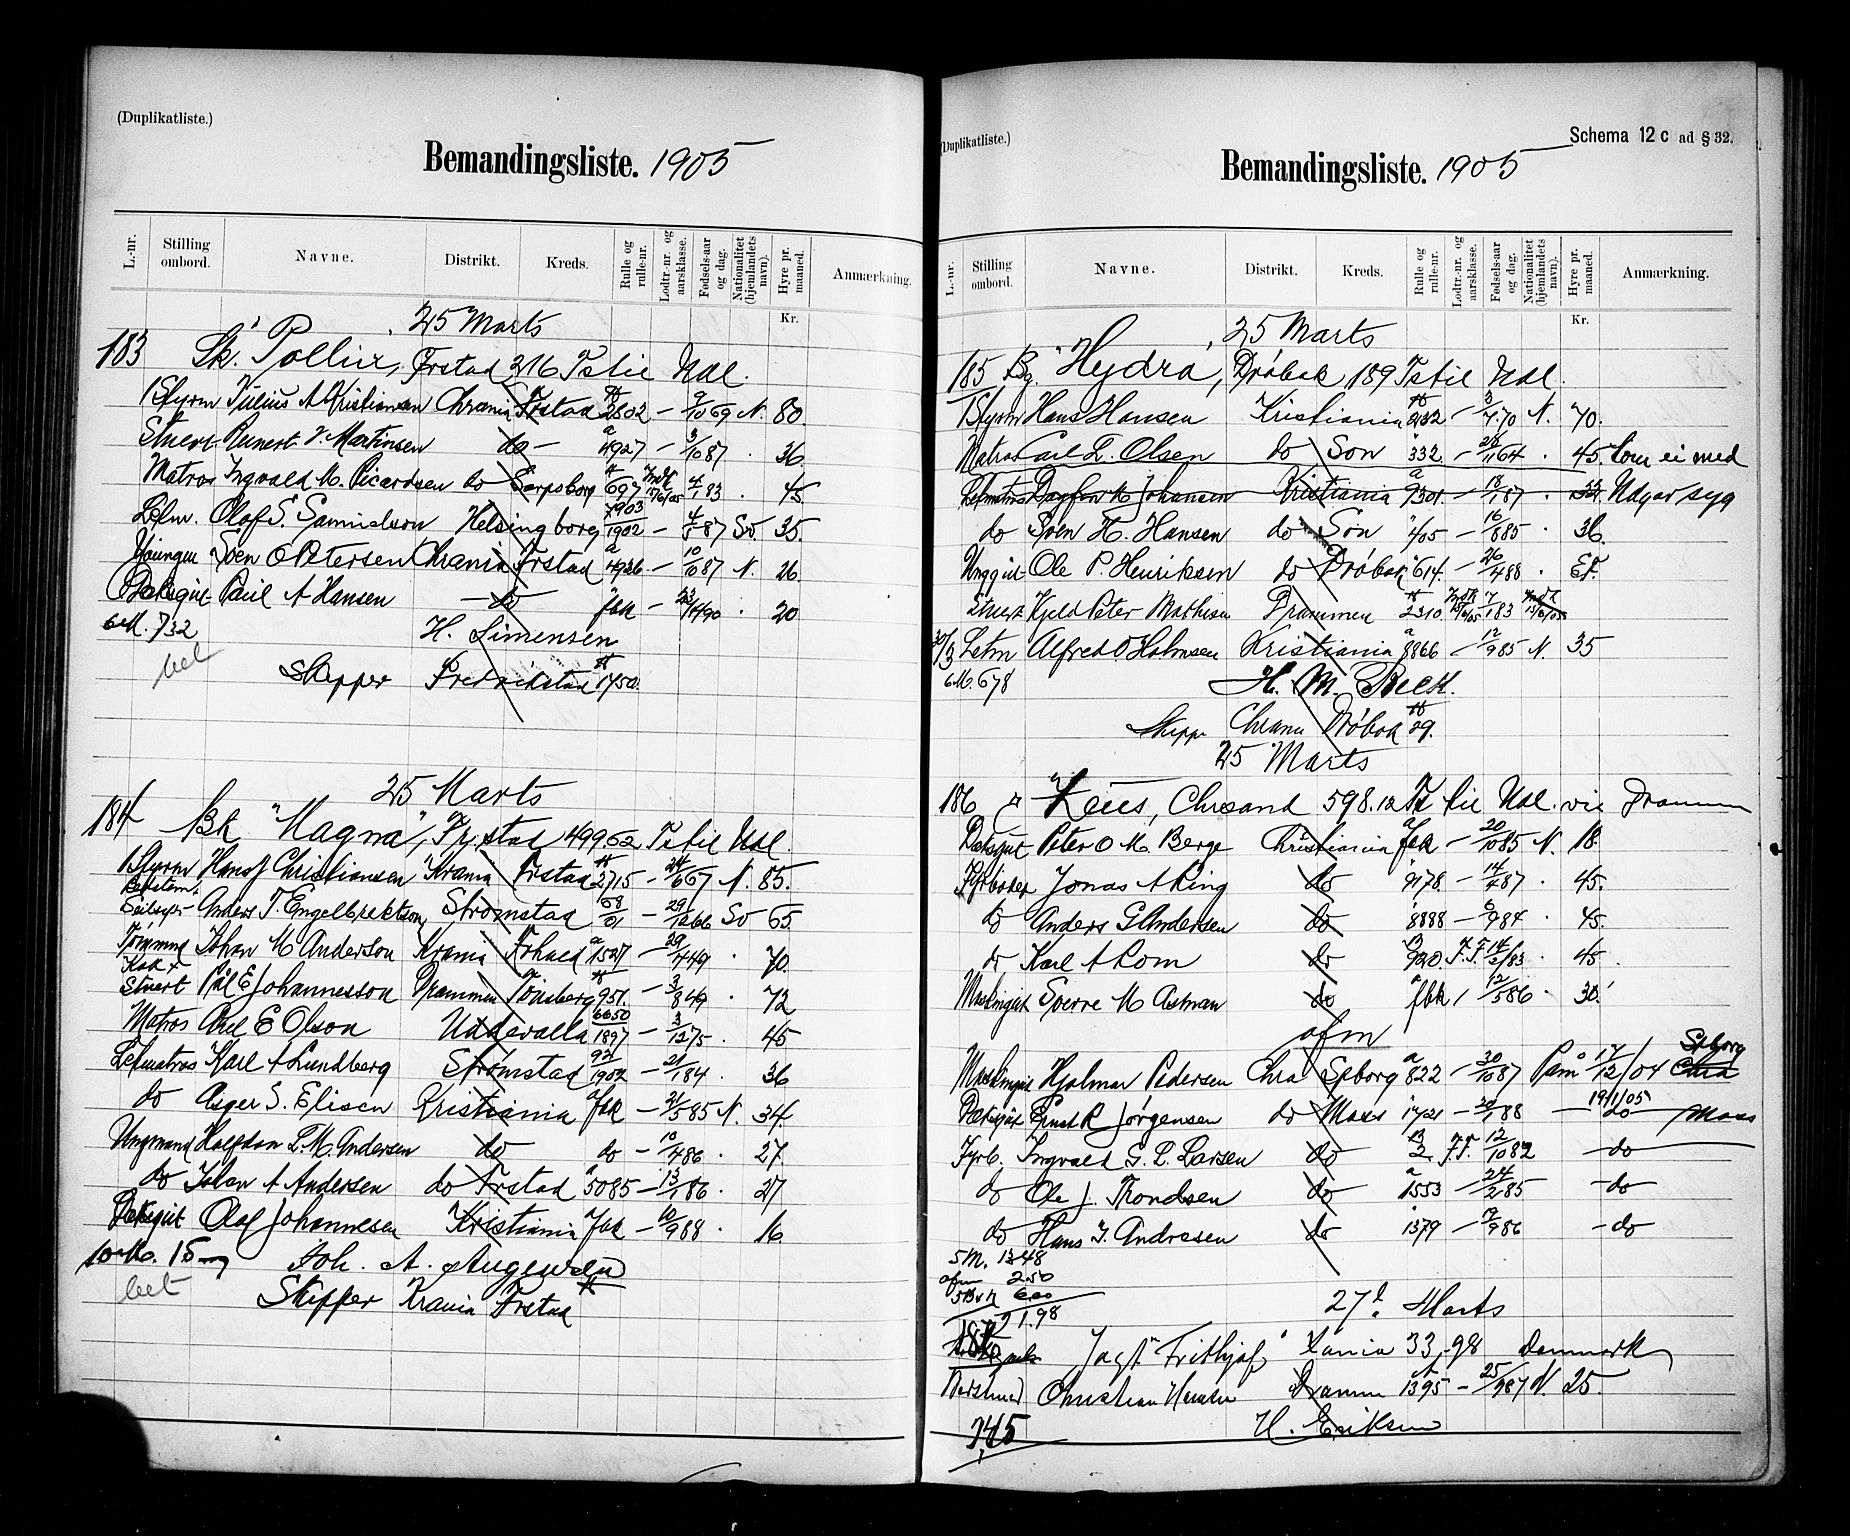 (Duplikatliste.)
Bemandingsliste. 1905
L.-nr. Stilling ombord. Navne. Distrikt. Kreds. Rulle og rulle-nr. Lodtr.-nr. og aarsklasse. Fødsels-aar og dag. Nationalitet (hjemlandets navn). Hyre pr. maaned. Anmærkning.
Kr.
25 Marts
183 Sk. "Pollux, Frstad 216 Ts til Udl.
1 Styrm Julius A Kristiansen Chrania Frstad 2802 – 9/10 69 N. 80.
Stuert Reinert V. Martinsen do – 4927 – 3/10 87 . 36
Matros Ingvald M. Ricardsen do Sarpsborg 697 4/1 83 . 45
Letm. Olof S. Samuelson Helsingborg 7903/1902 – 4/5 87 Sv. 35.
Youngm Sven O Petersen Chrania Frstad 4936 – 10/10 87 N. 26.
Dæksgut Paul A Hansen do fbk – 23/11 90 . 20
6 M. 7 32 H. Simensen
bet
Skipper Fredrikstad 1750.
25 Marts
184 Bk "Magna", Frstad 499 62 Ts til Udl.
1 Styrm Hans J Christiansen Krania Frstad 2715 – 24/6 67 N. 85.
Bdkstem.
Seilmgr Anders T. Engelbrektson Strømstad 68/01 – 29/12 66 Sv 65.
Tømmmd Johan M Anderson Krania Frhald 1527 – 29/4 49 . 70.
Kok +
Stuert Pål E Johannesson Drammen Tønsberg 951. – 3/8 49 . 72
Matros Axel E Olson Uddevalla 6650/1897 – 3/12 75 . 45
Letmatros Karl A Lundberg Strømstad 92/1902 – 21/1 84 . 36
do Asger S. Elisen Kristiania fbk – 21/5 85 N. 34.
Ungmand Halfdan L. M. Andersen do do – 10/4 86 . 27.
do Johan A Andersen do Frstad 5085 – 13/1 86 . 27
Dæksgut Olaf Johannesen Kristiania fbk – 10/9 88 . 16
10 M. 15 Joh. A. Augensen
bet
Skipper Krania Frstad
(Duplikatliste.)
Schema 12 c ad § 32.
Bemandingsliste. 1905
L.-nr. Stilling ombord. Navne. Distrikt. Kreds. Rulle og rulle-nr. Lodtr.-nr. og aarsklasse. Fødsels-aar og dag. Nationalitet (hjemlandets navn). Hyre pr. maaned. Anmærkning.
Kr.
25 Marts
185 Bg. "Hydra", Drøbak 189 Ts til Udl.
1 Styrm Hans Hansen Kristiania 232 – 3/7 70 N. 70.
Matros Carl L. Olsen do Son 332 – 28/1 64 . 45. kom ei med
Letmatros Dagfin K Johansen Kristiania 9301 – 13/1 87 . Udgar syg
do Sven H. Hansen do Son 405 – 16/8 85 . 36.
Unggut Ole P. Henriksen do Drøbak 614. – 26/4 88 .
Stuert Kjeld Peter Mathisen Drammen 2310 7/1 83
30/3 Letm Alfred O Holmsen Kristiania 8866 – 12/9 85 N. 35
6 M. 6 78 H. M. Beck.
Skipp Chrania Drøbak 29.
25 Marts
186 "Zeus, Chrsand 598.12 Ts til Udl. via Drammen
Dæksgut Peter O M Berge Christiania fbk – 20/10 85 N. 18.
Fyrbøder Jonas A Ring do 9178. – 14/7 87 . 45.
do Anders G Andersen do 8888 – 6/9 84 . 45.
do Karl A Rom do 920. F.F. 14/2 83 . 45.
Maskingut Sverre M Astman do fbk / 12/5 86 . 30.
afm
Maskingut Hjalmar Pedersen Chra Spborg 822 – 30/10 87 Påm 17/12/04 Spborg Chra
Dæksgut Ernst R Jørgensen do Moss 1721 – 20/1 88 19/1/05 do Moss
Fyrb. Ingvald G. L. Larsen do 2. F.F. 12/10 82 – do
do Ole J. Trondsen do 1553 – 24/2 85 – do
do Hans J. Andresen do 1379 – 17/9 86 – do
5 M. 13.48
afm 2.50
5 Bok 6.00
21.98
27d. Marts
187 Jagt "Frithjof" Xania 33,98 Danmark
Bestmd Christian Hansen Dramm 1395 – 25/9 87 N. 25.
745 H. Eriksen